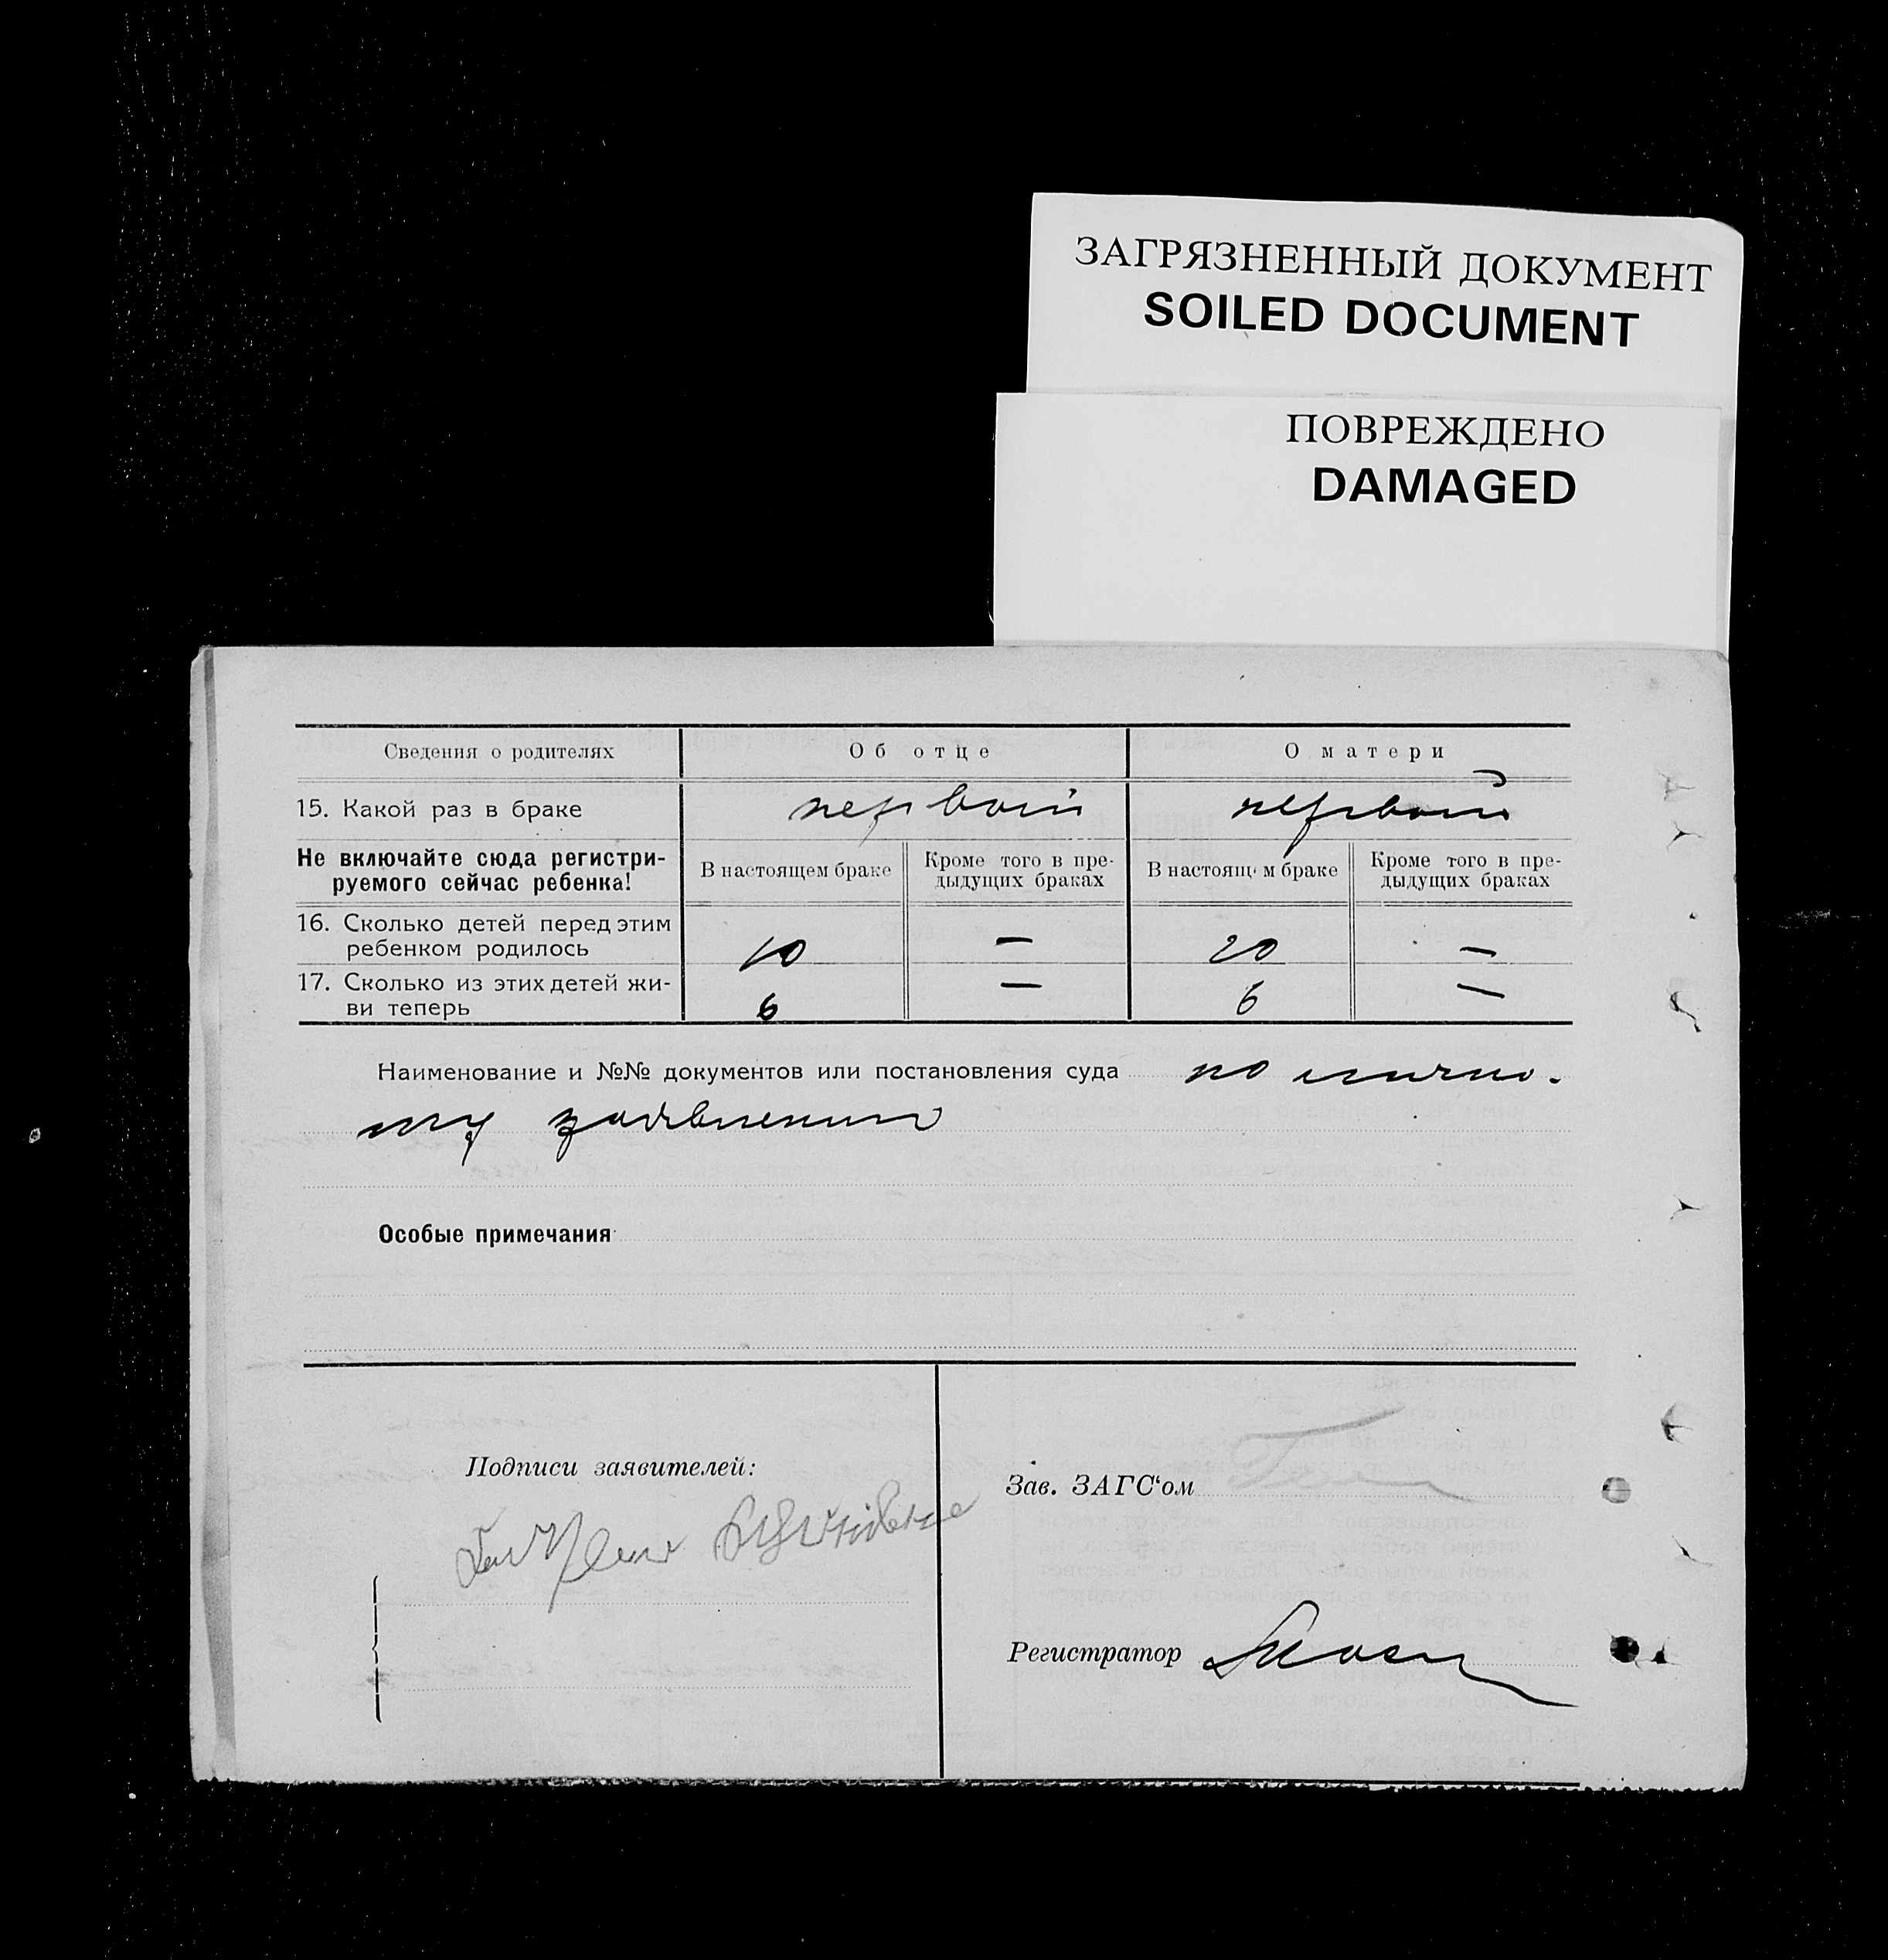 ЗАГРЯЗНЕННЫЙ ДОКУМЕНТ
SOILED DOCUMENT
ПОВРЕЖДЕНО
DAMAGED
Сведения о родителях Об отце О матери
15. Какой раз в браке первый первый
Не включайте сюда регистри-
руемого сейчас ребенка!
В настоящем браке
Кроме того в пре-
дыдущих браках
В настоящем браке
Кроме того в пре-
дыдущих браках
16. Сколько детей перед этим
ребенком родилось 10 — 20 —
17. Сколько из этих детей жи-
ви теперь 6 — 6 —
Наименование и №№ документов или постановления суда по лично-
му заявлению
Особые примечания
Подписи заявителей:
Зав. ЗАГС'ом
Регистратор